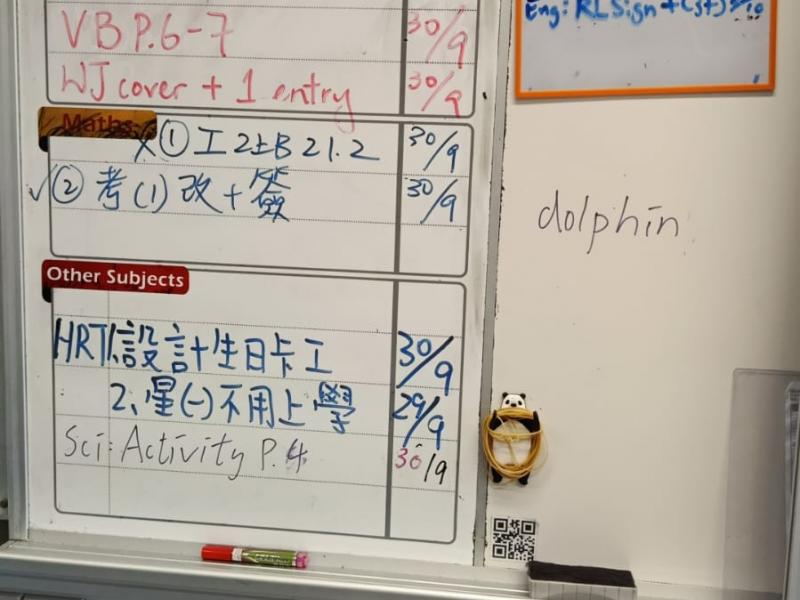 VB P.6-7 30/9
WJ cover + 1 entry 30/9
Maths
① 工 2上B 21.2 30/9
✓② 考(1) 改+簽 30/9
Other Subjects
HRT1.設計+生日卡工 30/9
2.星(一)不用上學 29/9
Sci: Activity P.4 30/9
Eng: RL Sign
dolphin